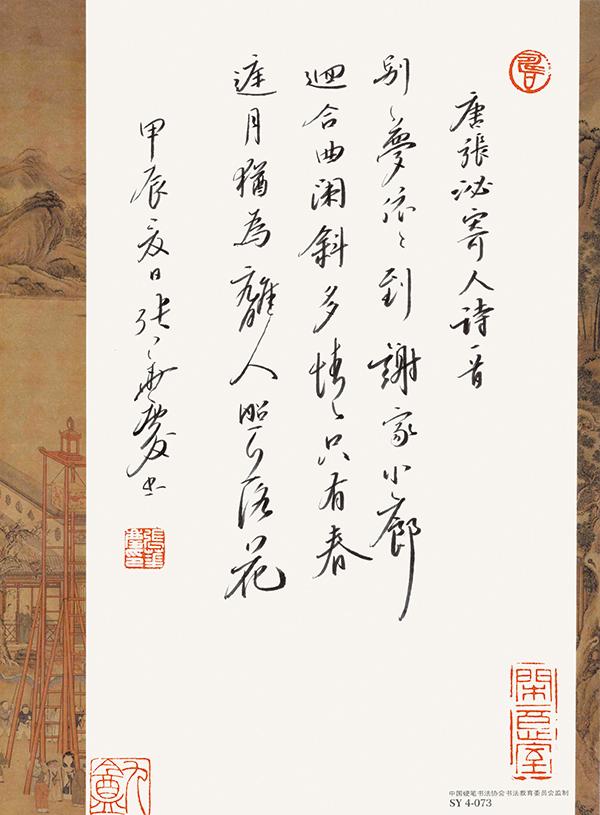 唐張泌寄人詩一首
别夢依〻到謝家小廊
迴合曲闌斜多情只有春
庭月猶為離人照落花
甲辰夏日张華慶书
中国硬笔书法协会书法教育委员会监制
SY 4-073